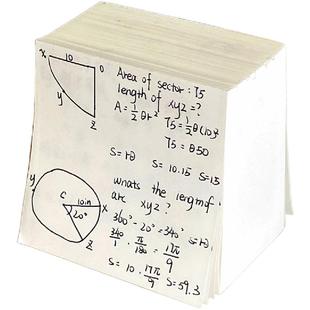 x 10 O
y
z
Area of sector : 75
length of xyz = ?
A = 1/2 θr²
75 = 1/2 θ (10)²
75 = θ50
S = rθ S = 10 · 1.5 S = 15
whats the length of
arc xyz ?
y C 10in x
20°
z
360° - 20° = 340° S = rθ
340/1 · π/180 = 17π/9
S = 10 · 17π/9 S = 59.3